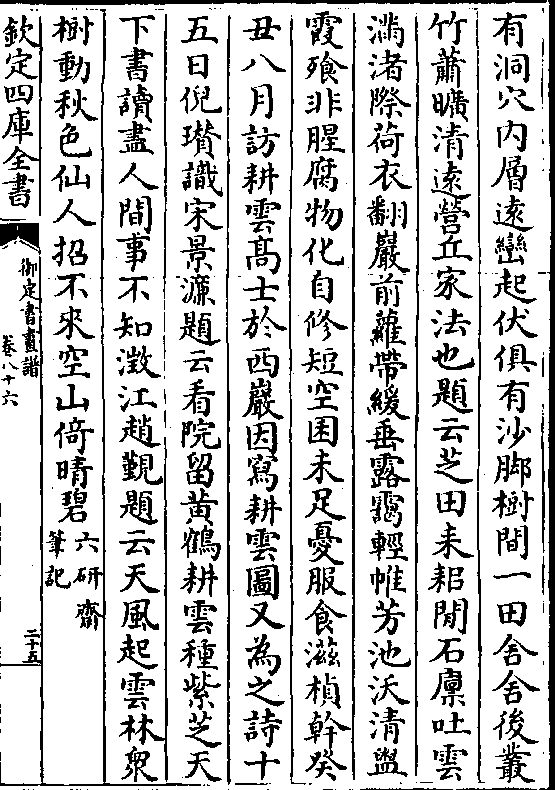 有洞穴内層逺巒起伏俱有沙脚樹間一田舍舍後叢
竹蕭曠清逺營丘家法也題云芝田耒耜閒石廪吐雲
滿渚際荷衣翻巖前蘿帶緩垂露靄輕帷芳池沃清盥
霞飱非腥腐物化自修短空囷未足憂服食滋楨幹癸
丑八月訪耕雲髙士於西巖因寫耕雲圖又為之詩十
五日倪瓚識宋景濂題云看院留黄鶴耕雲種紫芝天
下書讀盡人間事不知澂江趙觐題云天風起雲林衆
樹動秋色仙人招不來空山倚晴碧六研齋筆記
欽定四庫全書
御定書畫譜
卷八十六
二十五